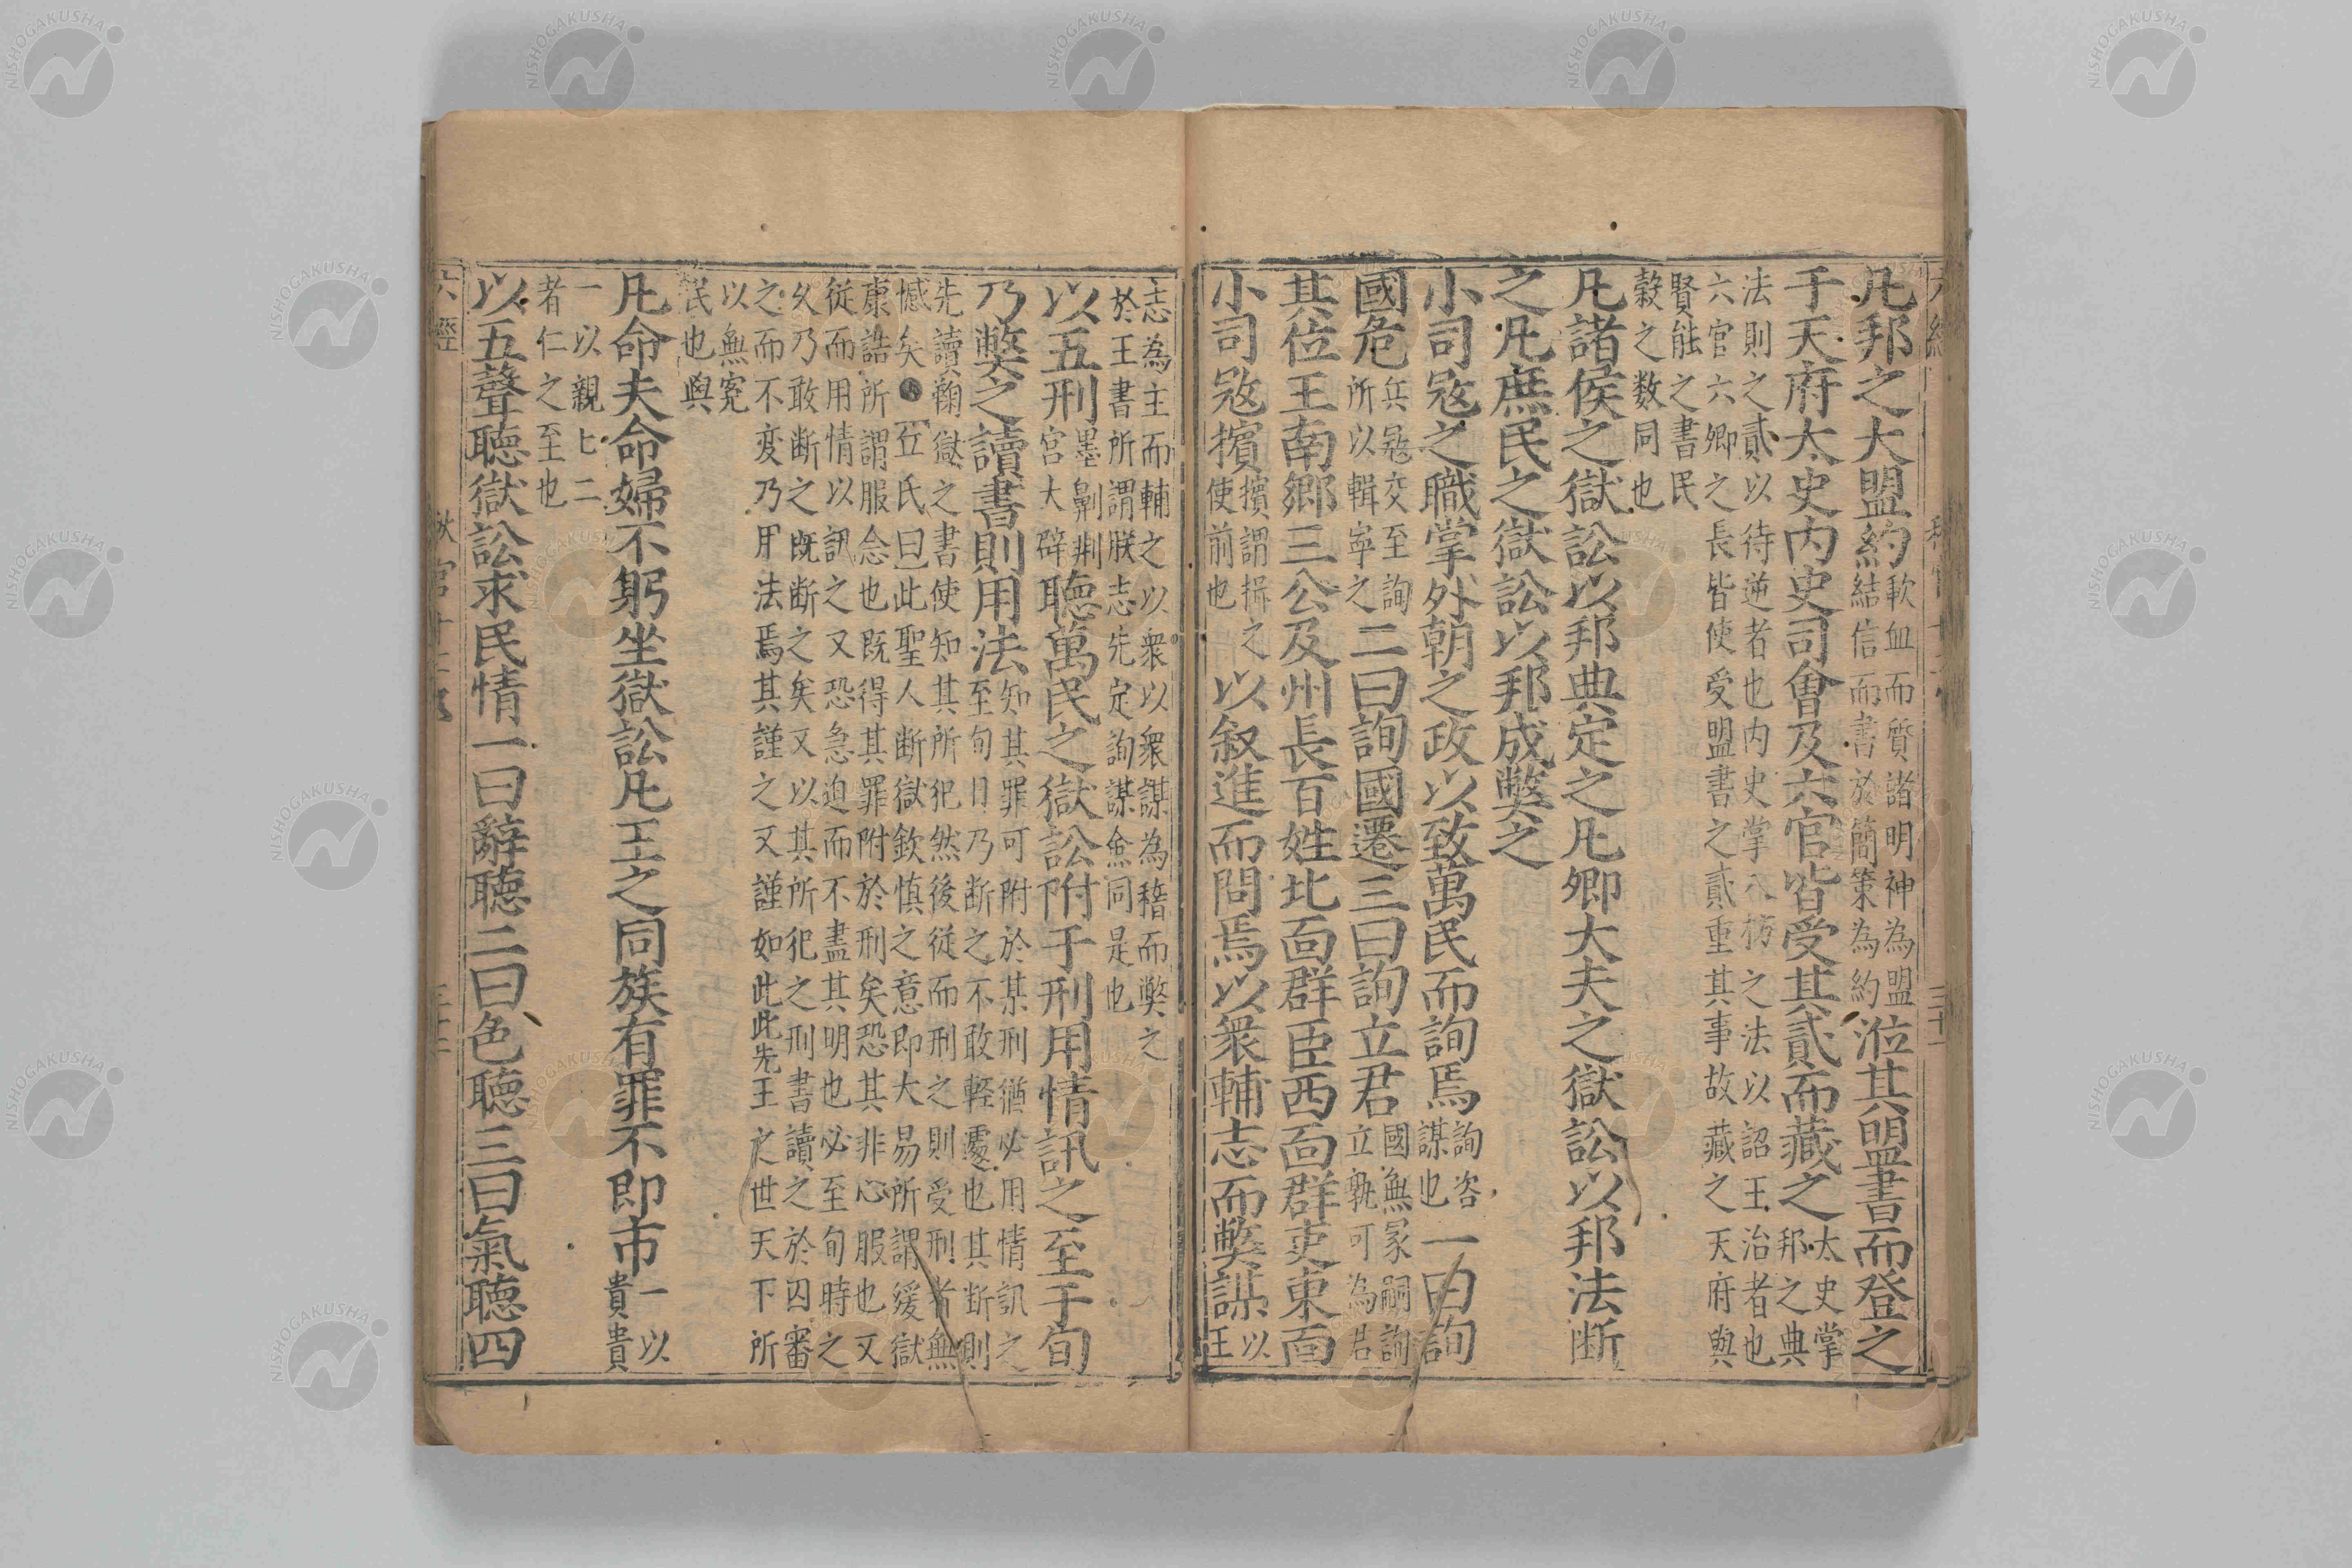 凡邦之大盟約歃血而質諸明神為盟結信而書於簡策為約涖其盟書而登之
于天府太史內史司會及六官皆受其貳而藏之太史掌邦之典
法則之貳以待逆者也內史掌八枋之法以詔王治者也
六官六卿之長皆使受盟書之貳重其事故藏之天府與
賢能之書民
穀之数同也
凡諸侯之獄訟以邦典定之凡卿大夫之獄訟以邦法断
之凡庶民之獄訟以邦成弊之
小司寇之職掌外朝之政以致萬民而詢焉詢咨謀也一曰詢
國危兵寇交至詢所以輯寧之二曰詢國遷三曰詢立君國無冢嗣詢立孰可為君
其位王南鄉三公及州長百姓北面群臣西面群吏東面
小司寇擯擯謂揖之使前也以叙進而問焉以衆輔志而弊謀以王
志為主而輔之以衆以衆謀為稽而弊之
於王書所謂朕志先定詢謀僉同是也
以五刑墨劓剕宮大辟聴萬民之獄訟附于刑用情訊之至于旬
乃弊之讀書則用法知其罪可附於某刑猶必用情訊之至旬日乃断之不敢輕處也其断則
先讀鞫獄之書使知其所犯然後従而刑之則受刑者無
憾矣丘氏曰此聖人断獄欽慎之意即大易所謂緩獄
康誥所謂服念也既得其罪附於刑矣恐其非心服也又
従而用情以訊之又恐急迫而不盡其明也必至旬時之
久乃敢断之既断之矣又以其所犯之刑書讀之於囚審
之而不変乃用法焉其謹之又謹如此此先王之世天下所
以無寃
民也與
凡命夫命婦不躬坐獄訟凡王之同族有罪不即市一以貴貴
一以親匕二
者仁之至也
以五聲聴獄訟求民情一曰辭聴二曰色聴三曰氣聴四
六經
秋官十二
NISHOGAKUSHA